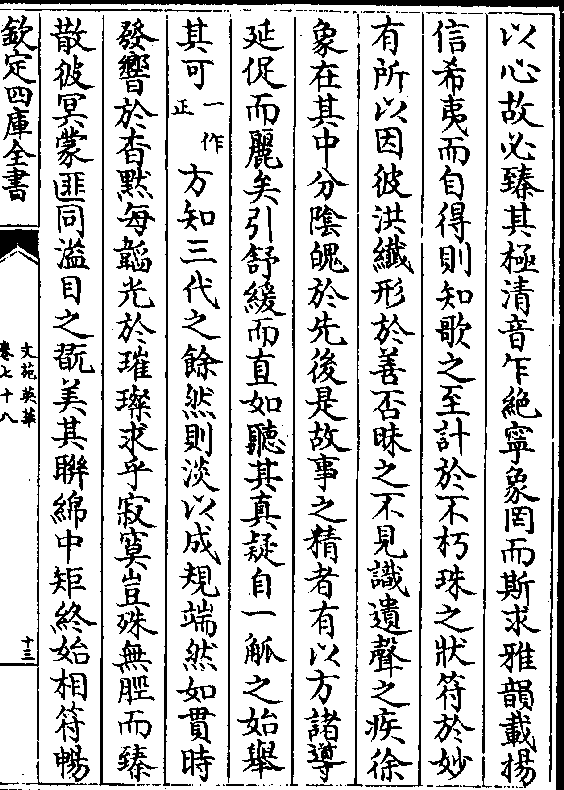 以心故必臻其極清音乍絶寧象罔而斯求雅韻載揚
信希夷而自得則知歌之至計於不朽珠之狀符於妙
有所以因彼洪纖形於善否昧之不見識遺聲之疾徐
象在其中分陰魄於先後是故事之精者有以方諸導
延促而麗矣引舒緩而直如聽其真疑自一觚之始舉
其可一作正方知三代之餘然則淡以成規端然如貫時
發響於杳黙每韜光於璀璨求乎寂寞豈殊無脛而臻
散彼冥蒙匪同溢目之翫美其聯綿中矩終始相符暢
欽定四庫全書
文苑英華
卷七十八
十三